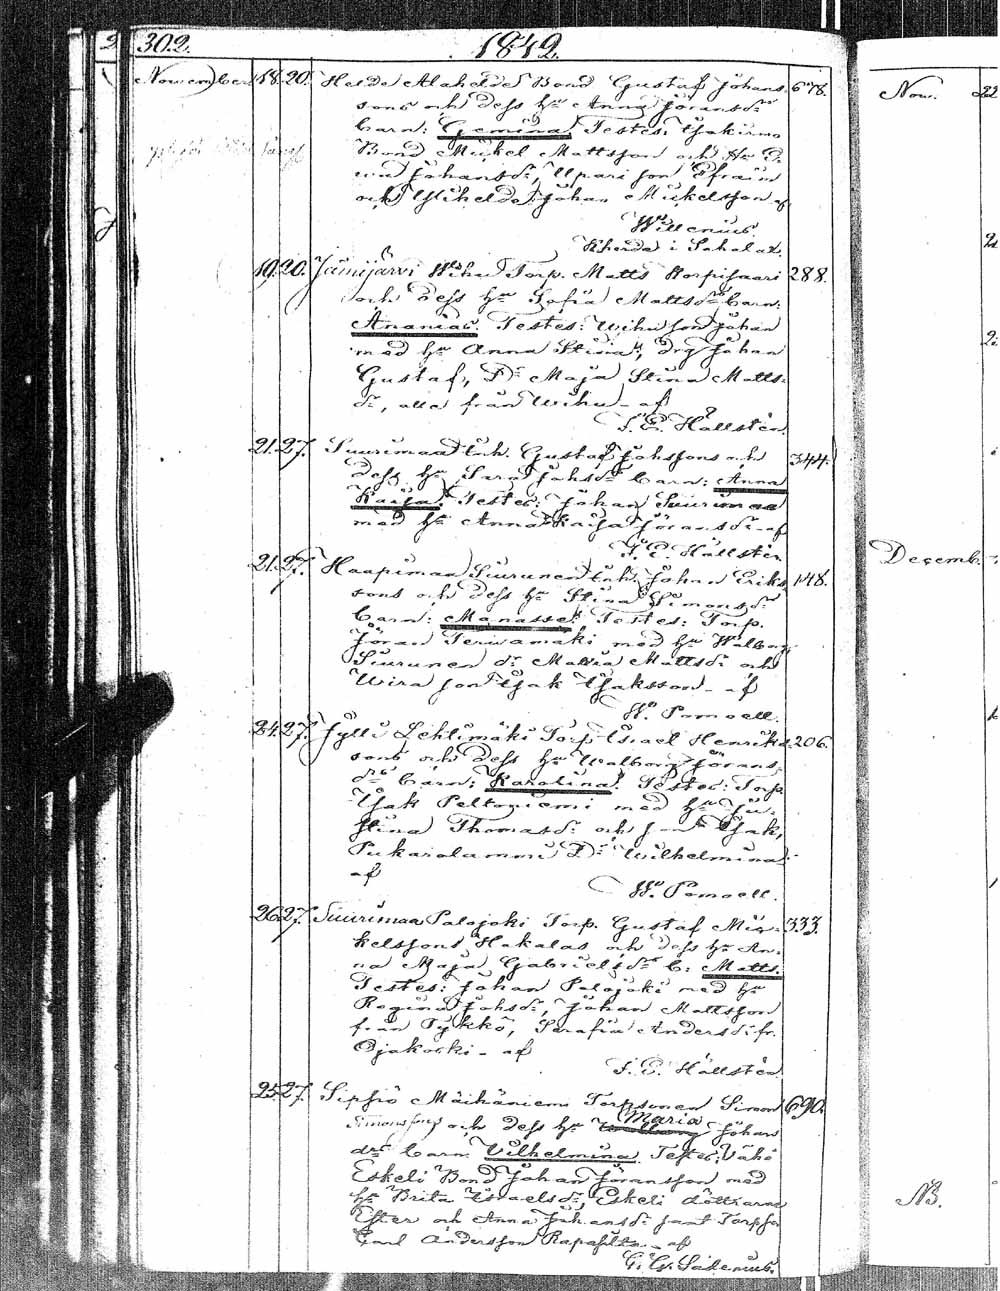 302. 1842.
November 18. 20. Heide Alahelde Bond Gustaf Johans- 678.
sons och dess hu Anna Göransdr
barn: Gemina. Testes:
Bond Mickel Mattsson och
Johansdr, Upari son Efraim
och Ylihelde Johan Mickelsson af
Wm Willenius.
Kherde i Sahalax.
19. 20. Jämijärvi Wihu Torp. Matts Korpisaari 288.
och dess hu Sofia Mattsdr barn:
Ananias. Testes: Wihu son Johan
med hu Anna Stina, drg Johan
Gustaf, Dr Maja Stina Matts-
dr, alla från Wihu - af
F. E. Hällstén.
21. 27. Suurimaa Inh. Gustaf Johssons och 344.
dess hu Sara Johsdr barn: Anna
Kaisa. Testes: Johan Suurimaa
med hu Anna Kaisa Göransdr - af
F. E. Hällstén
21. 27. Haapimaa Siurunen Inh. Johan Eriks- 148.
sons och dess hu Stina Simonsdr
barn: Manasse. Testes: Torp.
Göran Terwamäki med hu Walborg
Siurunen dr Maria Mattsdr och
Wira son Isak Isaksson - af
W. Pomoell.
24. 27. Jylli Lehtimäki Torp Israel Henriks- 206.
sons och dess hu Walborg Görans-
drs barn: Karolina. Testes: Torp
Isak Peltoniemi med hu Ju-
stina Thomasdr och son Isak,
Pukaralammi Dr Wilhelmina -
af
W. Pomoell.
26. 27. Suurimaa Palojoki Torp. Gustaf Mic- 333.
kelssons Hakalas och dess hu An-
na Maja Gabrielsdr b: Matts.
Testes: Johan Palojoki med hu
Regina Johsdr, Johan Mattsson
från Tykkö, Serafia Andersdr fr.
Ojakoski - af
F. E. Hällstén
25. 27. Sipsiö Mäihäniemi Torpsonen Simon 690.
Simonssons och dess hu Maria Johans
drs barn Vilhelmina. Testes: Vähä
Eskeli Bond Johan Göransson med
hu Brita Israelsdr, Eskeli döttrarna
Ester och Anna Johansdr samt Torpson
Carl Andersson Rapasilta - af
G. W. Sadenius.
Nov. 22
Decemb.
NB.